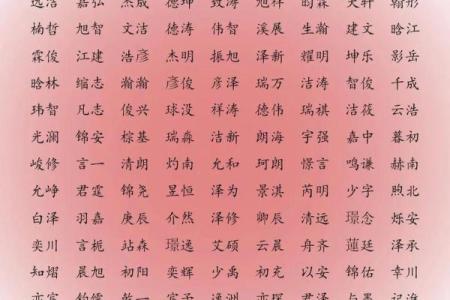 文洁 德沛 伟智 溪展 生瀚 建文 晗江
楠哲 旭宏
霖俊 江建 浩彦 杰明 振旭 泽新 耀明 坤乐 影岳
晗林 缩志 瀚瀚 彦俊 彦泽 瑞万 洁涛 智俊 千成
玮智 凡志 俊兴 球没 祥涛 德伟 瑞祺 洁筱 云浩
光澜 锦安 棕基 瑞淼 洁新 朗海 宇强 嘉中 暮初
峻修 言一 清朗 灼南 允和 珂朗 憬言 鸣谦 赫南
允峥 君霆 锦尧 昱恒 泽为 景淇 芮明 少字 煦北
白泽 羽嘉 庚辰 介然 泽修 卿辰 清远 璟念 烁安
奕川 言栀 站森 璟逸 艾硕 云晨 舟齐 莲廷 泽承
知熠 晨旭 初阳 奕辉 少禹 初充 以安 锦佑 幸川